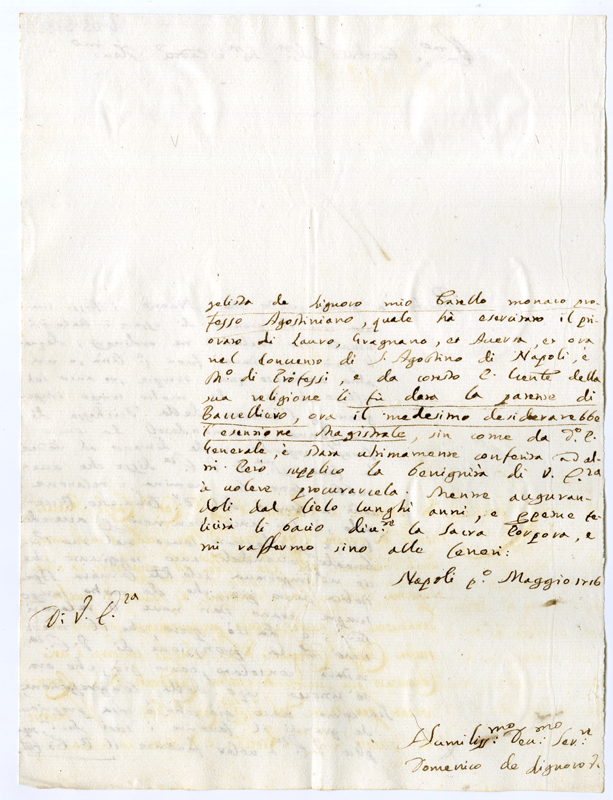 gelista de Signoro mio Fratello monaco pro-
fesso Agostiniano, quale hà esercitato il pri-
orato di Lauro, Gragnano, et Aversa, et ora
nel Convento di S. Agostino di Napoli, è
M.º di Professi, e da cotesto P. Gen.te della
sua religione li fù data la patente di
Baccelliero, ora il medesimo desiderarebbe
l'esenzione Magistrale, sin come da d.º P.
Generale, è stata ultimamente conferita ad al-
tri. Però supplico la benignità di V. P.za
à volere procurarcela. Mentre auguran-
doli dal Cielo lunghi anni, e perene fe-
licità li bacio div.te la Sacra Porpora, e
mi raffermo sino alle Ceneri:
Napoli p.º Maggio 1716
Di V. P.za
Humiliss.mo Dev.mo Ser.re
Domenico de Signoro